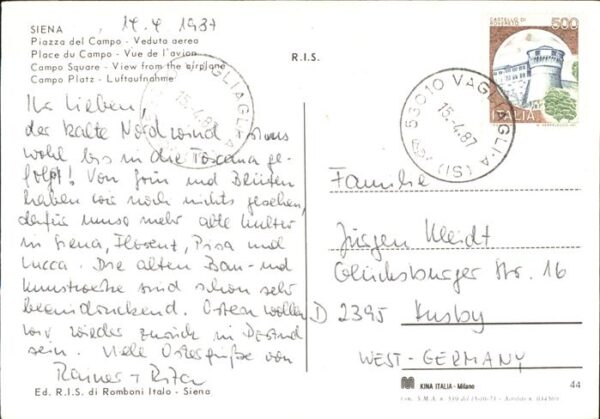 SIENA
14.4.1987
Piazza del Campo - Veduta aerea
Place du Campo - Vue de l'avion
Campo Square - View from the airplane
Campo Platz - Luftaufnahme
R.I.S.
Ihr Lieben,
der kalte Nordwind ist uns
wohl bis in die Toscana ge-
folgt! Von Grün und Blüten
haben wir noch nichts gesehen,
dafür umso mehr alte Kultur
in Siena, Florenz, Pisa und
Lucca. Die alten Bau- und
Kunstwerke sind schon sehr
beeindruckend. Ostern wollen
wir wieder zurück in
sein. Viele Ostergrüße von
Rainer + Rita
Ed. R.I.S. di Romboni Italo - Siena
CASTELLO DI
ROVERETO
500
ITALIA
53010 VAGLIAGLIA (SI)
15.-4.87
VAGLIAGLIA
15.-4.87
Familie
Jürgen
Glücksburger Str. 16
D 2395 Husby
WEST-GERMANY
KINA ITALIA - Milano
44